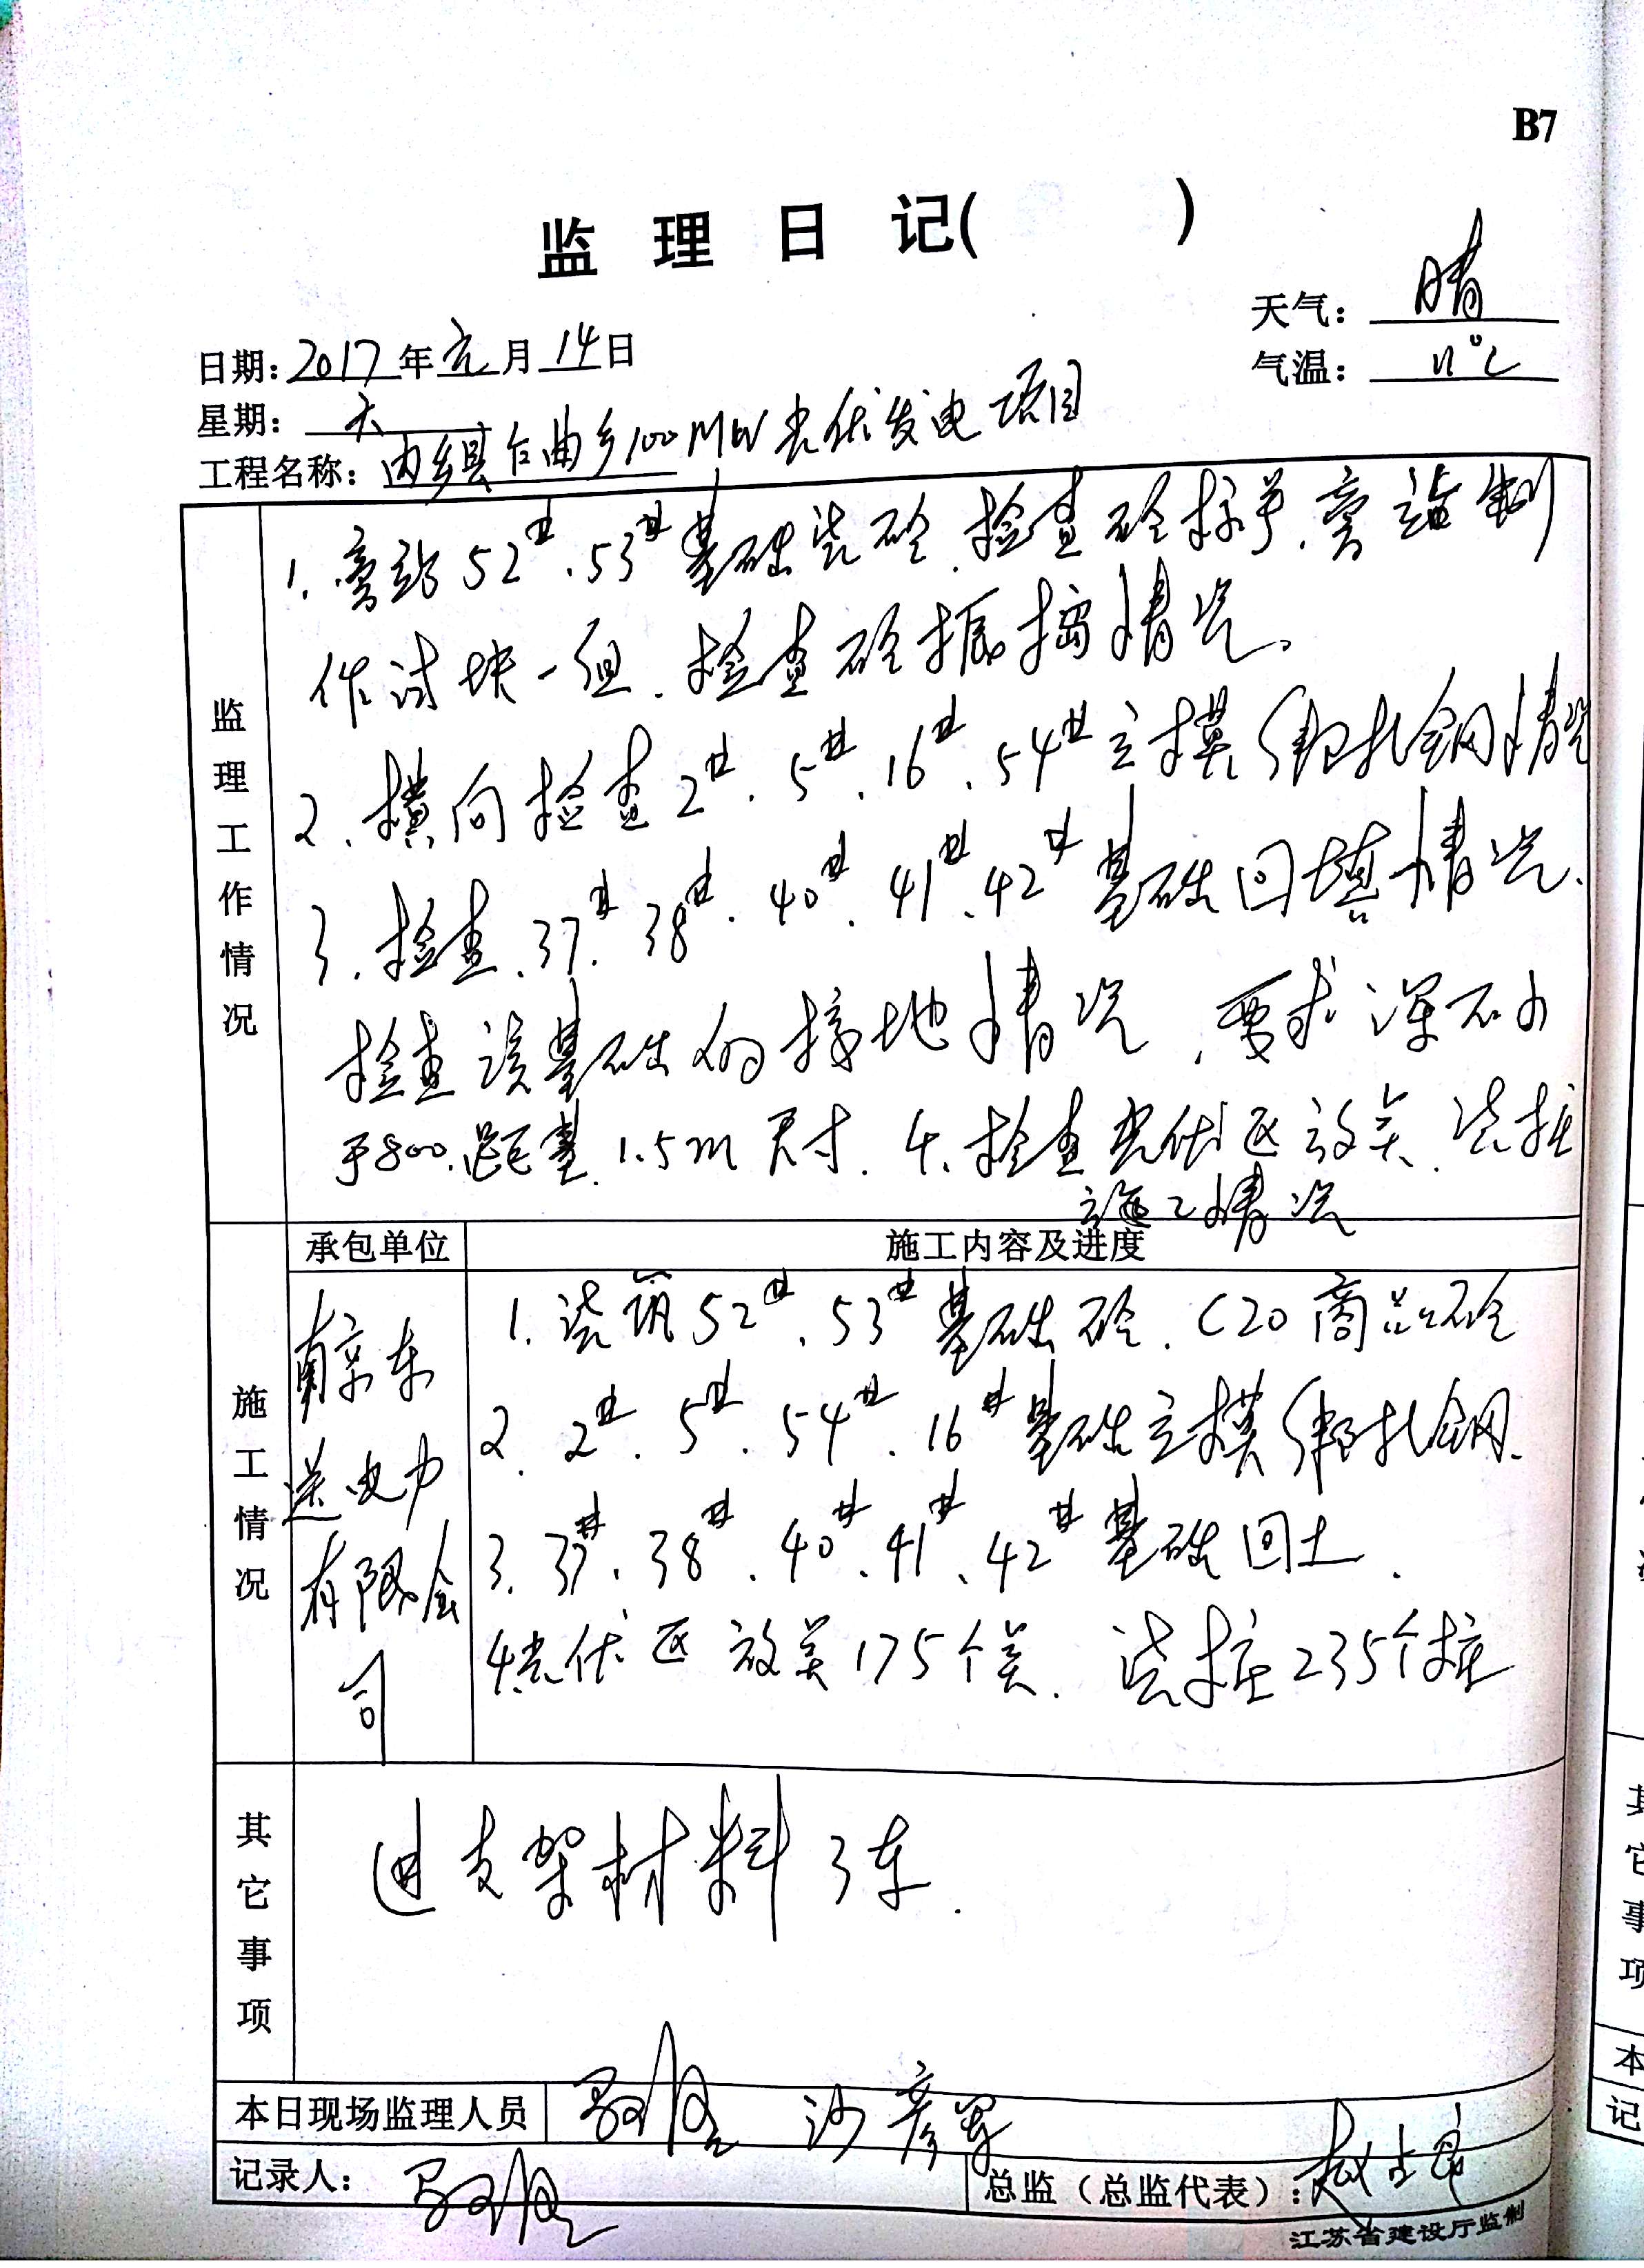 B7
监理日记( )
天气: 晴
日期: 2017年元月14日
气温: 11℃
星期: 六
工程名称: 内乡县 曲乡100MW光伏发电项目
监理工作情况
1. 旁站52#、53#基础浇砼、检查砼 、旁站制
作试块一组、检查砼振捣情况。
2、横向检查2#、5#、16#、54#立模绑扎钢情况
3、检查、37#、38#、40#、41#、42#基础回填情况、
检查该基础的接地情况、要求深不小
于800、距基、1.5m尺寸、4、检查光伏区放 、浇桩
施工情况
承包单位 施工内容及进度
施工情况
南京东
送电力
有限公
司
1. 浇筑52#、53#基础砼、C20商品砼
2、2#、5#、54#、16#基础立模绑扎钢、
3、37#、38#、40#、41#、42#基础回土、
4、光伏区放 175个 、浇桩235个桩
其它事项
进支架材料3车、
本日现场监理人员 沙彦军
记录人:
总监（总监代表）:
江苏省建设厅监制